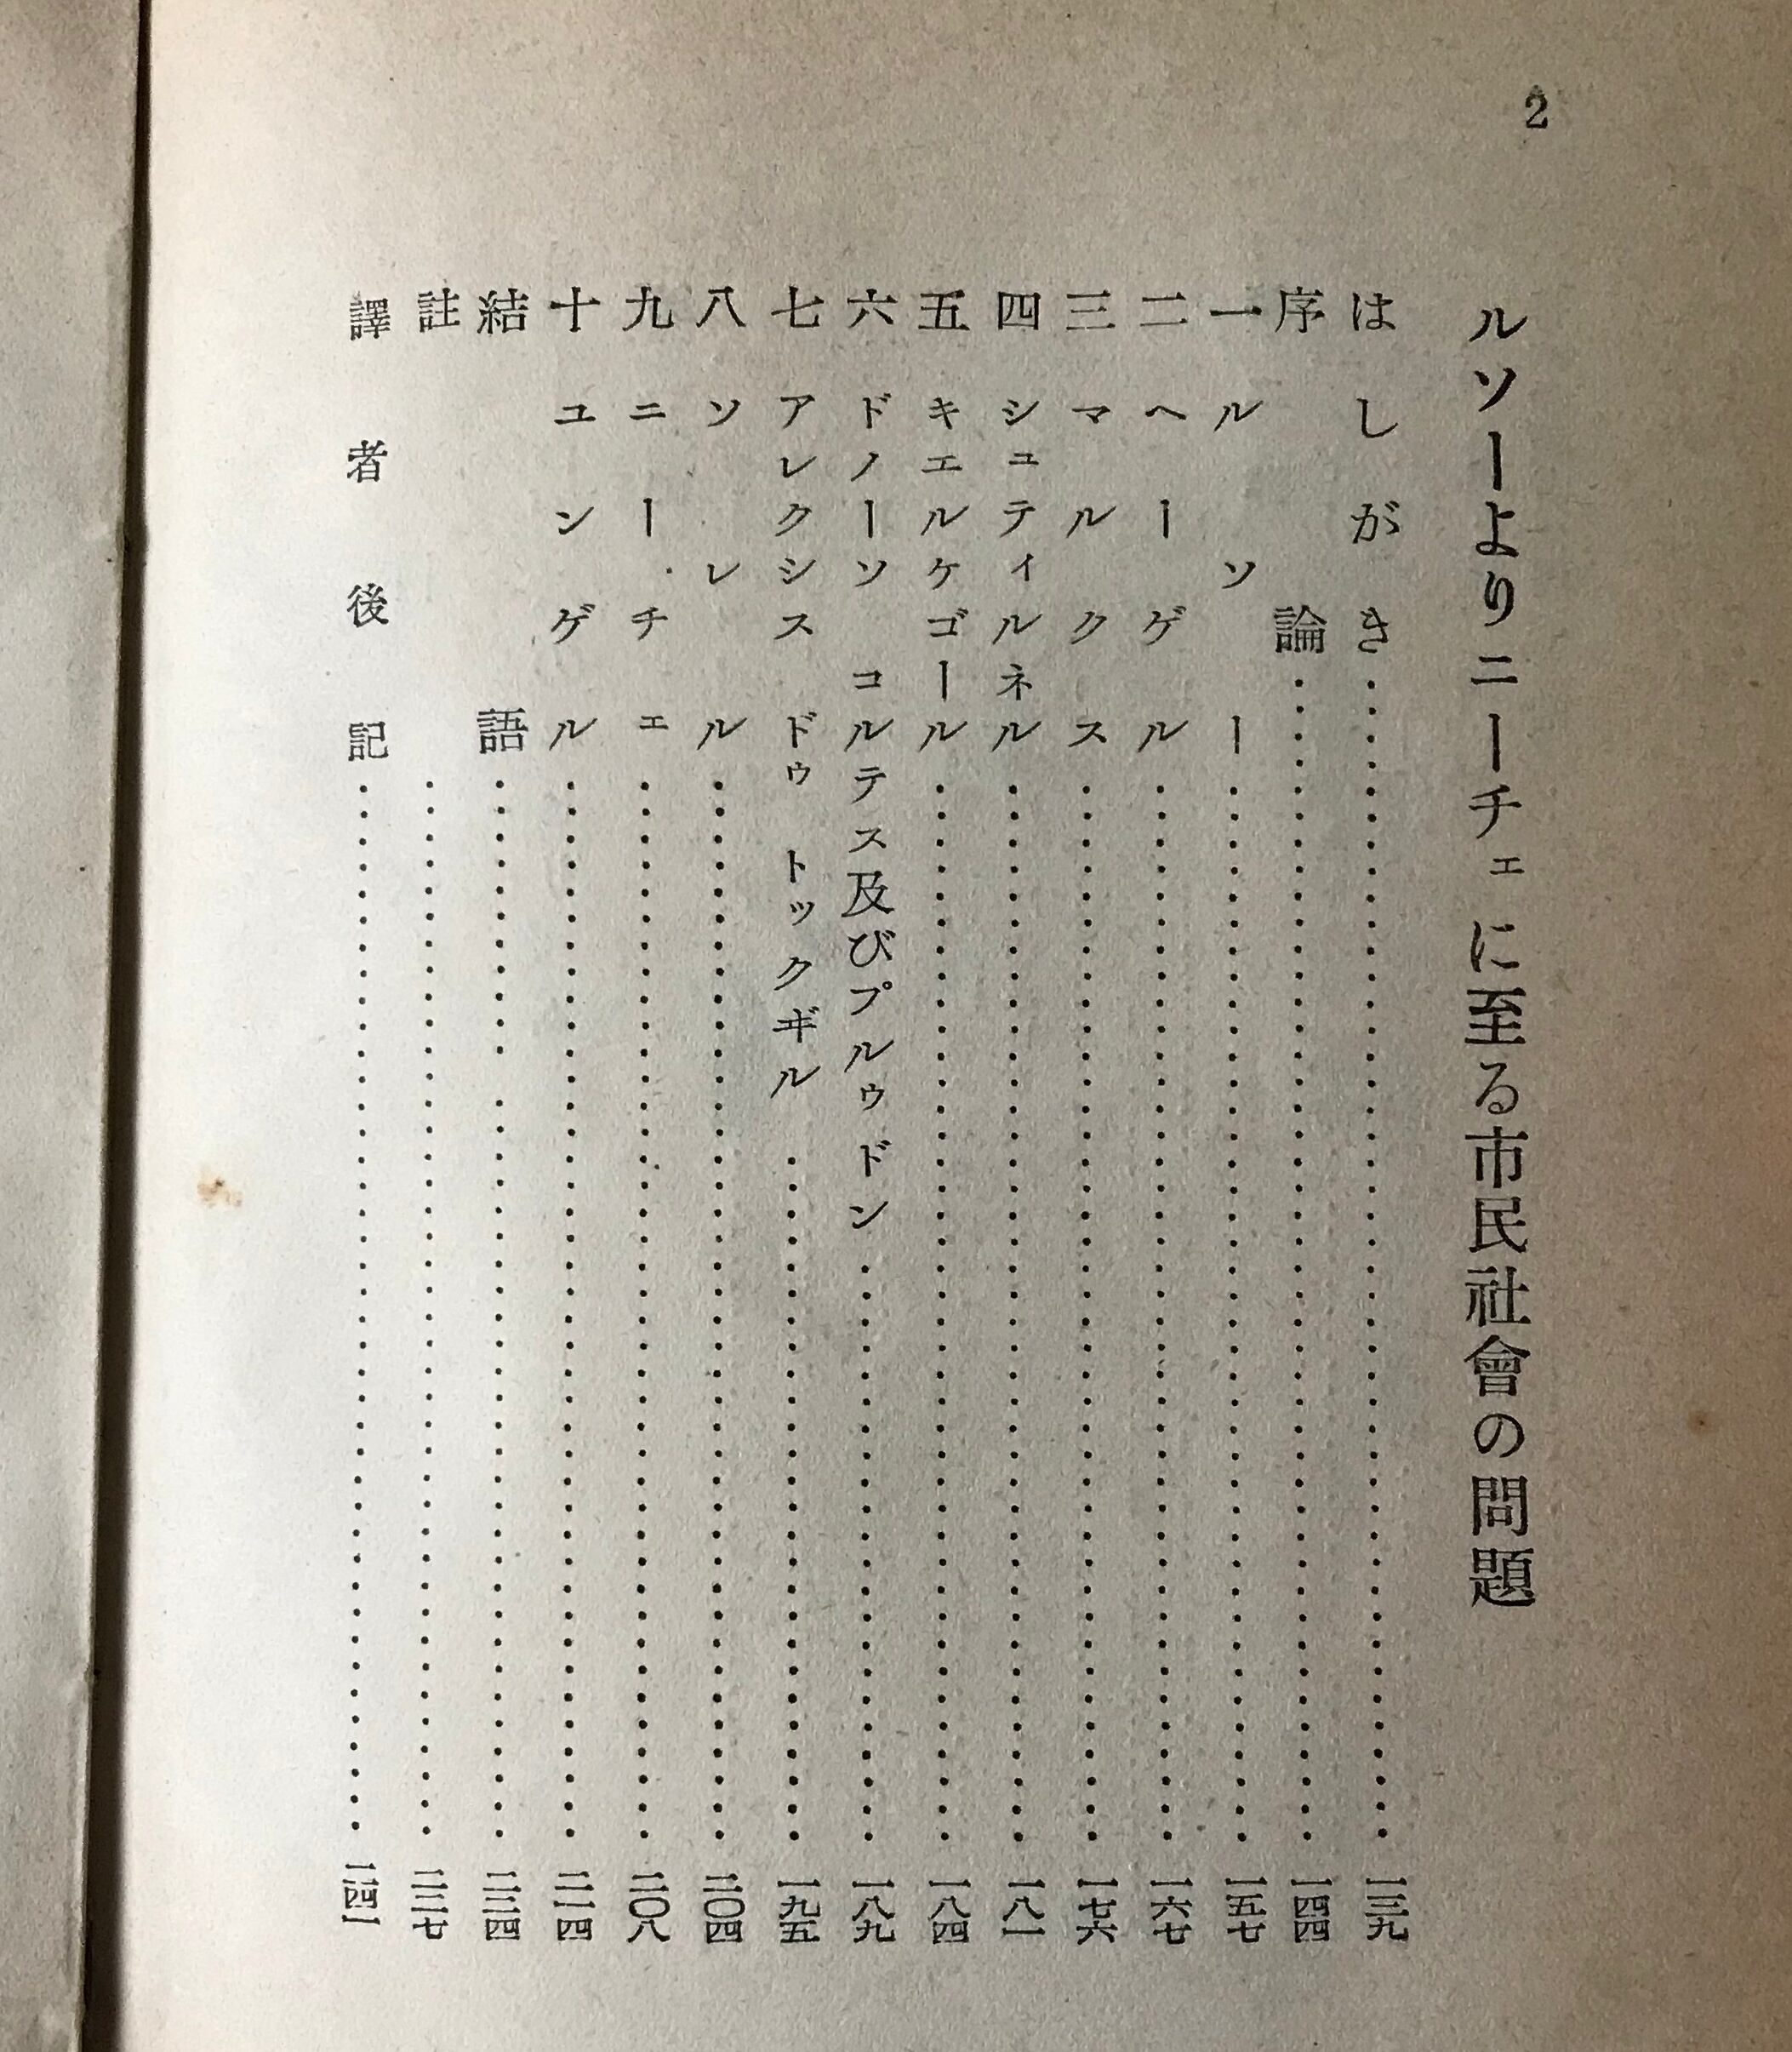 2
ルソーよりニーチェに至る市民社會の問題
はしがき……一三九
序論……一四四
一 ルソー……一五七
二 ヘーゲル……一六七
三 マルクス……一七六
四 シュティルネル……一八一
五 キエルケゴール……一八四
六 ドノーソ コルテス及びプルゥドン……一八九
七 アレクシス ドゥ トックヸル……一九五
八 ソレル……二〇四
九 ニーチェ……二〇八
十 ユンゲル……二一四
結語……二二四
註……二二七
譯者後記……二四一